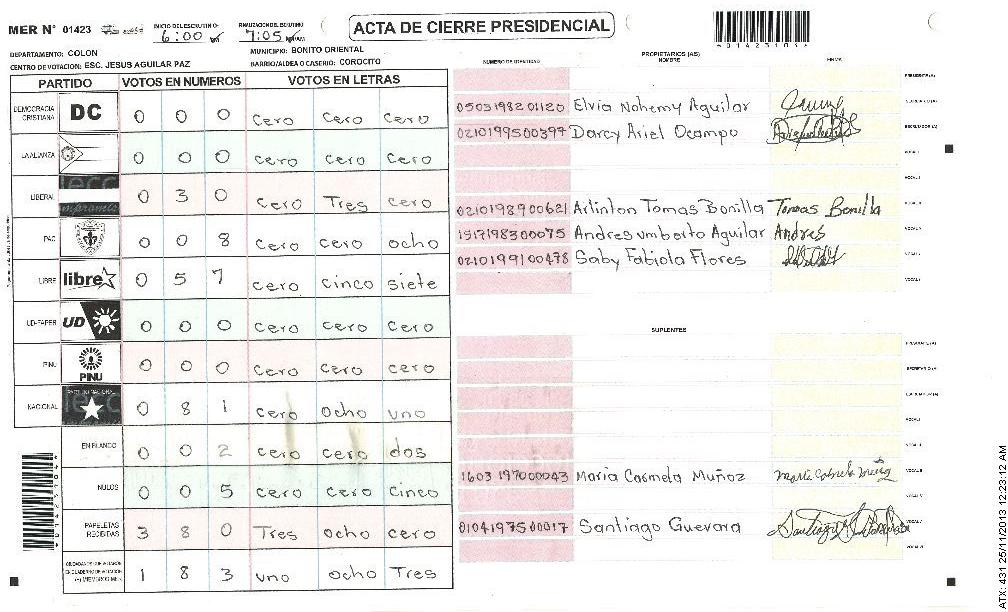 MER N° 01423 INICIO DEL ESCRUTINIO: 6:00 FINALIZACION DEL ESCRUTINIO 7:05 ACTA DE CIERRE PRESIDENCIAL
DEPARTAMENTO: COLON MUNICIPIO: BONITO ORIENTAL
CENTRO DE VOTACION: ESC. JESUS AGUILAR PAZ BARRIO/ALDEA O CASERIO: COROCITO
PARTIDO VOTOS EN NUMEROS VOTOS EN LETRAS
DEMOCRACIA CRISTIANA DC 0 0 0 cero cero cero
LA ALIANZA 0 0 0 cero cero cero
LIBERAL 0 3 0 cero Tres cero
PAC 0 0 8 cero cero ocho
LIBRE libre 0 5 7 cero cinco siete
UD-FAPER UD 0 0 0 cero cero cero
PINU PINU 0 0 0 cero cero cero
NACIONAL 0 8 1 cero ocho uno
EN BLANCO 0 0 2 cero cero dos
NULOS 0 0 5 cero cero cinco
PAPELETAS RECIBIDAS 3 8 0 Tres ocho cero
1 8 3 uno ocho Tres
NUMERO DE IDENTIDAD PROPIETARIOS (AS) NOMBRE FIRMA
PRESIDENTE (A)
0503198201120 Elvia Nohemy Aguilar SECRETARIO (A)
0210199500397 Darcy Ariel Ocampo ESCRUTADOR (A)
VOCAL I
VOCAL II
0210198900621 Arlinton Tomas Bonilla Tomas Bonilla
1517198300075 Andres umberto Aguilar Andres
0210199100478 Saby Fabiola Flores
SUPLENTES
PRESIDENTE (A)
SECRETARIO (A)
ESCRUTADOR (A)
1603197000043 Maria Carmela Muñoz
0104197500017 Santiago Guevara
ATX: 431 25/11/2013 12:23:12 AM